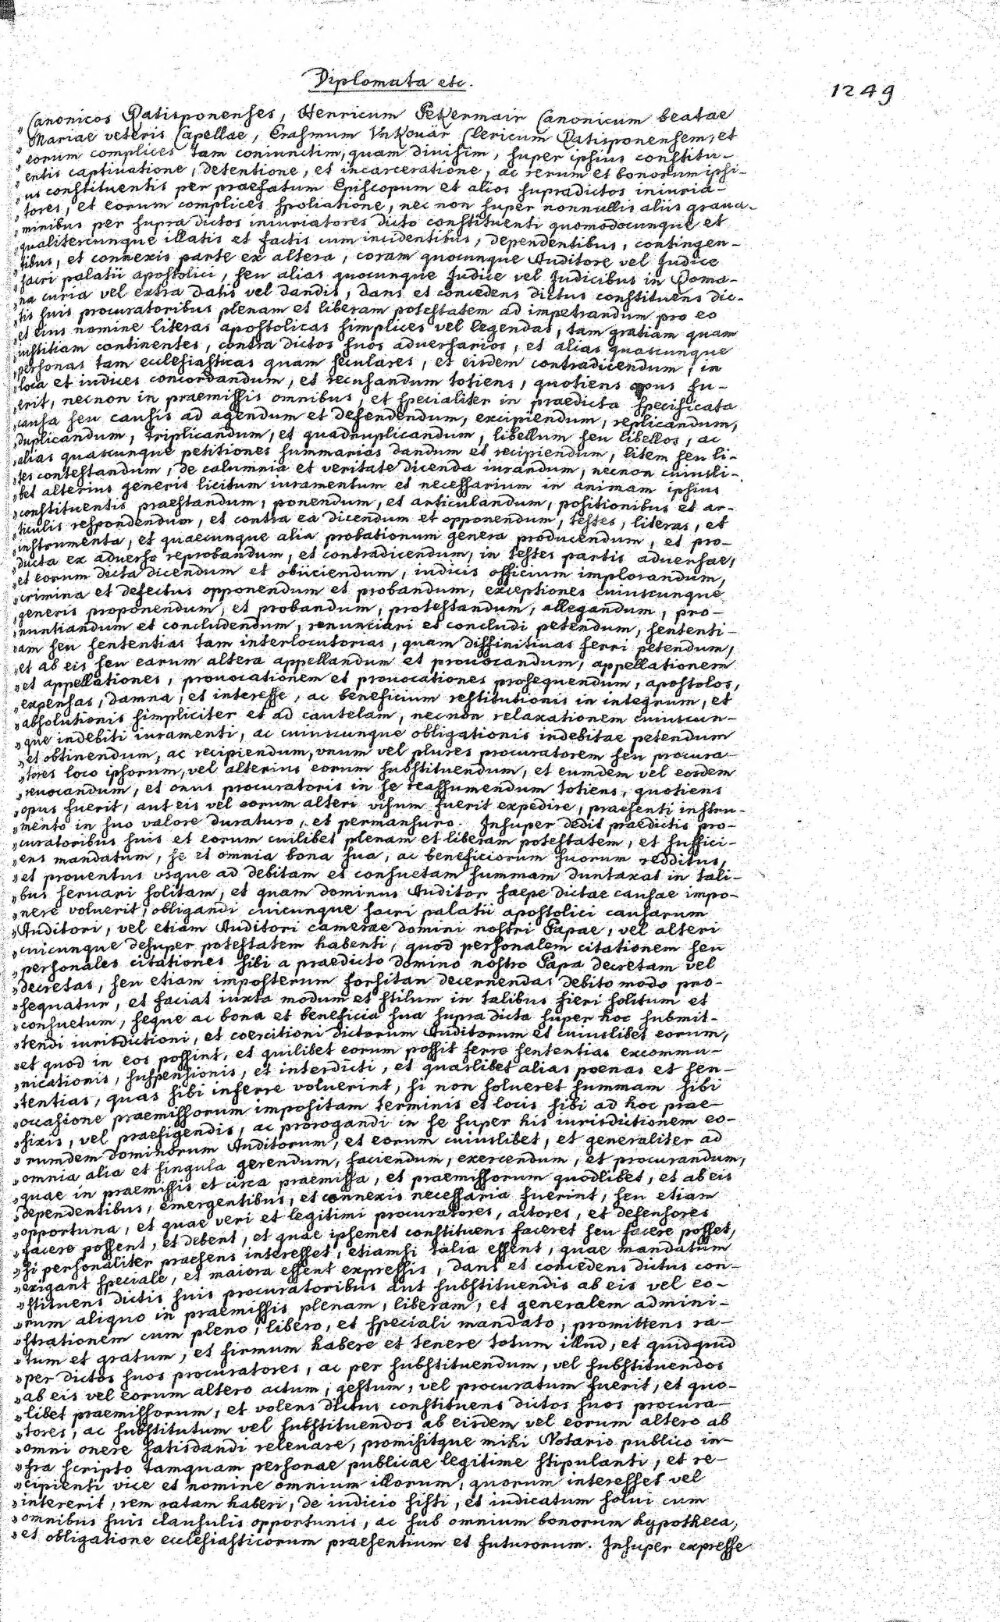 Diplomata etc.
1249
Canonicos Ratisponenses, Henricum Petzermair Canonicum beatae
„ Mariae veteris Capellae, Erasmum Clericum Ratisponensem, et
„ eorum complices tam coniunctim, quam divisim, super ipsius constitu-
„ entis captivatione, detentione, et incarceratione, ac rerum et bonorum ipsi-
„ us constituentis per praefatum Episcopum et alios supradictos iniuria-
„ tores, et eorum complices spoliatione, nec non super nonnullis aliis grava-
„ minibus per supra dictos iniuriatores dicto constituenti quomodocunque et
„ qualitercunque illatis et factis cum incidentibus, dependentibus, contingen-
„ tibus, et connexis parte ex altera, coram quocunque Auditore vel Judice
„ sacri palatii apostolici, seu alias quocunque Judice vel Judicibus in Roma-
„ na curia vel extra datis vel dandis, dans et concedens dictus constituens dic-
„ tis suis procuratoribus plenam et liberam potestatem ad impetrandum pro eo
„ et eius nomine literas apostolicas simplices vel legendas, tam gratiam quam
„ iustitiam continentes, contra dictos suos adversarios, et alias quascunque
„ personas tam ecclesiasticas quam seculares, et eisdem contradicendum, in
„ loca et iudices concordandum, et recusandum totiens, quotiens opus fu-
„ erit, necnon in praemissis omnibus, et specialiter in praedicta specificata
„ causa seu causis ad agendum et defendendum, excipiendum, replicandum,
„ duplicandum, triplicandum, et quadruplicandum, libellum seu libellos, ac
„ alias quascunque petitiones summarias dandum et recipiendum, litem seu li-
„ tes contestandum, de calumnia et veritate dicenda iurandum, necnon cuiusli-
„ bet alterius generis licitum iuramentum et necessarium in animam ipsius
„ constituentis praestandum, ponendum, et articulandum, positionibus et ar-
„ ticulis respondendum, et contra ea dicendum et opponendum, testes, literas, et
„ instrumenta, et quaecunque alia probationum genera producendum, et pro-
„ ducta ex adverso reprobandum, et contradicendum, in testes partis adversae,
„ et eorum dicta dicendum et obiiciendum, iudicis officium implorandum,
„ crimina et defectus opponendum et probandum, exceptiones cuiuscunque
„ generis proponendum, et probandum, protestandum, allegandum, pro-
„ nuntiandum et concludendum, renunciari et concludi petendum, sententi-
„ am seu sententias tam interlocutorias, quam diffinitivas ferri petendum,
„ et ab eis seu earum altera appellandum et provocandum, appellationem
„ et appellationes, provocationem et provocationes prosequendum, apostolos,
„ expensas, damna, et interesse, ac beneficium restitutionis in integrum, et
„ absolutionis simpliciter et ad cautelam, necnon relaxationem cuiuscun-
„ que indebiti iuramenti, ac cuiuscunque obligationis indebitae petendum
„ et obtinendum, ac recipiendum, vnum vel plures procuratorem seu procura
„ tores loco ipsorum, vel alterius eorum substituendum, et eumdem vel eosdem
„ reuocandum, et onus procuratoris in se reassumendum totiens, quotiens
„ opus fuerit, aut eis vel eorum alteri visum fuerit expedire, praesenti instru-
„ mento in suo valore duraturo, et permansuro. Insuper dedit praedictis pro-
„ curatoribus suis et eorum cuilibet plenam et liberam potestatem, et suffici-
„ ens mandatum, se et omnia bona sua, ac beneficiorum suorum redditus,
„ et prouentus vsque ad debitam et consuetam summam duntaxat in tali-
„ bus seruari solitam, et quam dominus Auditor saepe dictae causae impo-
„ nere voluerit, obligandi cuicunque sacri palatii apostolici causarum
„ Auditori, vel etiam Auditori camerae domini nostri Papae, vel alteri
„ cuicunque desuper potestatem habenti, quod personalem citationem seu
„ personales citationes sibi a praedicto domino nostro Papa decretam vel
„ decretas, seu etiam imposterum forsitan decernendas debito modo pro-
„ sequatur, et faciat iuxta modum et stilum in talibus fieri solitum et
„ consuetum, seque ac bona et beneficia sua supra dicta super hoc submit-
„ tendi iurisdictioni, et coercitioni dictorum Auditorum et cuiuslibet eorum,
„ et quod in eos possint, et quilibet eorum possit ferre sententias excommu-
„ nicationis, suspensionis, et interdicti, et quaslibet alias poenas et sen-
„ tentias, quas sibi inferre voluerint, si non solueret summam sibi
„ occasione praemissorum impositam terminis et locis sibi ad hoc prae-
„ fixis, vel praefigendis, ac prorogandi in se super his iurisdictionem eo-
„ rumdem dominorum Auditorum, et eorum cuiuslibet, et generaliter ad
„ omnia alia et singula gerendum, faciendum, exercendum, et procurandum,
„ quae in praemissis et circa praemissa, et praemissorum quodlibet, et ab eis
„ dependentibus, emergentibus, et connexis necessaria fuerint, seu etiam
„ opportuna, et quae veri et legitimi procuratores, actores, et defensores
„ facere possent, et debent, et quae ipsemet constituens faceret seu facere posset,
„ si personaliter praesens interesset, etiamsi talia essent, quae mandatum
„ exigant speciale, et maiora essent expressis, dans et concedens dictus con-
„ stituens dictis suis procuratoribus aut substituendis ab eis vel eo-
„ rum aliquo in praemissis plenam, liberam, et generalem admini-
„ strationem cum pleno, libero, et speciali mandato, promittens ra-
„ tum et gratum, et firmum habere et tenere totum illud, et quidquid
„ per dictos suos procuratores, ac per substituendum, vel substituendos
„ ab eis vel eorum altero actum, gestum, vel procuratum fuerit, et quo-
„ libet praemissorum, et volens dictus constituens dictos suos procura-
„ tores, ac substitutum vel substituendos ab eisdem vel eorum altero ab
„ omni onere satisdandi releuare, promisitque mihi Notario publico in-
„ fra scripto tamquam personae publicae legitime stipulanti, et re-
„ cipienti vice et nomine omnium illorum, quorum interesset vel
„ intererit, rem ratam haberi, de iudicio sisti, et iudicatum solui cum
„ omnibus suis clausulis opportunis, ac sub omnium bonorum hypotheca,
„ et obligatione ecclesiasticorum praesentium et futurorum. Insuper expresse